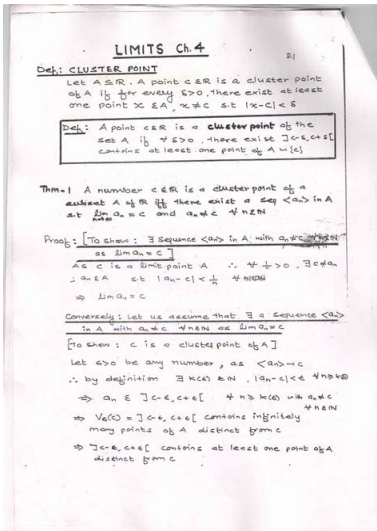 LIMITS Ch. 4
Def: CLUSTER POINT
Let A ⊆ IR. A point c ε IR is a cluster point
of A if for every δ>0, there exist at least
one point x ε A, x ≠ c s.t |x-c| < δ
Def: A point c ε IR is a cluster point of the
set A if ∀ δ>0, there exist ]c-δ, c+δ[
contains at least one point of A ~ {c}
Thm-1 A number c ε IR is a cluster point of a
subset A of IR iff there exist a seq <an> in A
s.t lim an = c and an ≠ c ∀ n ε IN
Proof: [To show: ∃ sequence <an> in A with an ≠ c ∀ n ε IN
as lim an = c]
As c is a limit point A ∴ ∀ 1/n >0, ∃ c ≠ an
; an ε A s.t |an - c| < 1/n ∀ n ε IN
⇒ lim an = c
Conversely: let us assume that ∃ a sequence <an>
in A with an ≠ c ∀ n ε IN as lim an = c
[To show: c is a cluster point of A]
Let ε>0 be any number, as <an> → c
∴ by definition ∃ k(ε) ε IN, |an - c| < ε ∀ n ≥ k(ε)
⇒ an ε ]c-ε, c+ε[ ∀ n ≥ k(ε) with an ≠ c
∀ n ε IN
⇒ Vε(c) = ]c-ε, c+ε[ contains infinitely
many points of A distinct from c
⇒ ]c-ε, c+ε[ contains at least one point of A
distinct from c